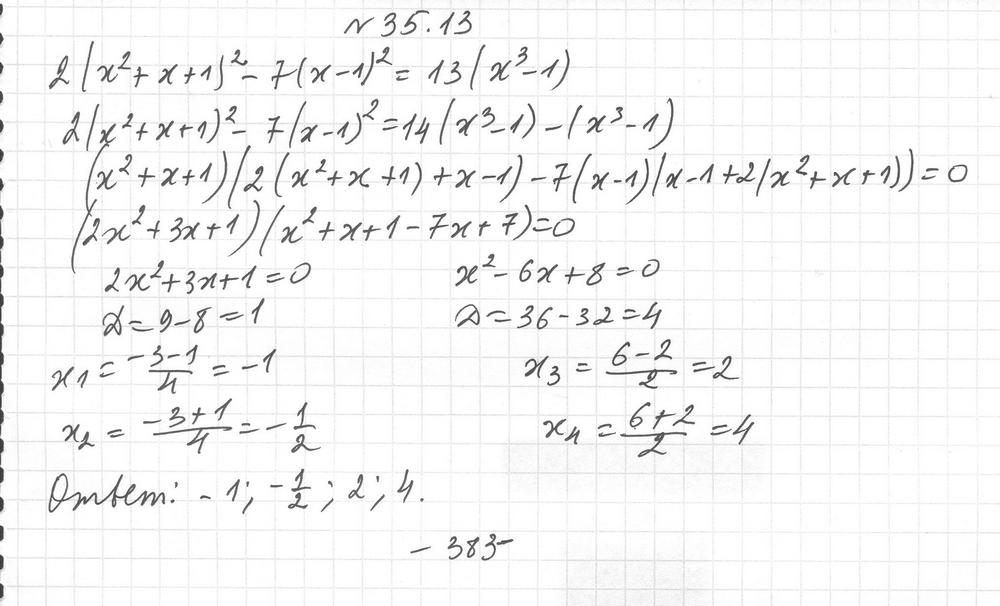 № 35.13
2(x²+x+1)²-7(x-1)²=13(x³-1)
2(x²+x+1)²-7(x-1)²=14(x³-1)-(x³-1)
(x²+x+1)(2(x²+x+1)+x-1)-7(x-1)(x-1+2(x²+x+1))=0
(2x²+3x+1)(x²+x+1-7x+7)=0
2x²+3x+1=0 x²-6x+8=0
D=9-8=1 D=36-32=4
x₁=(-3-1)/4=-1 x₃=(6-2)/2=2
x₂=(-3+1)/4=-1/2 x₄=(6+2)/2=4
Ответ: -1; -1/2; 2; 4.
-383-